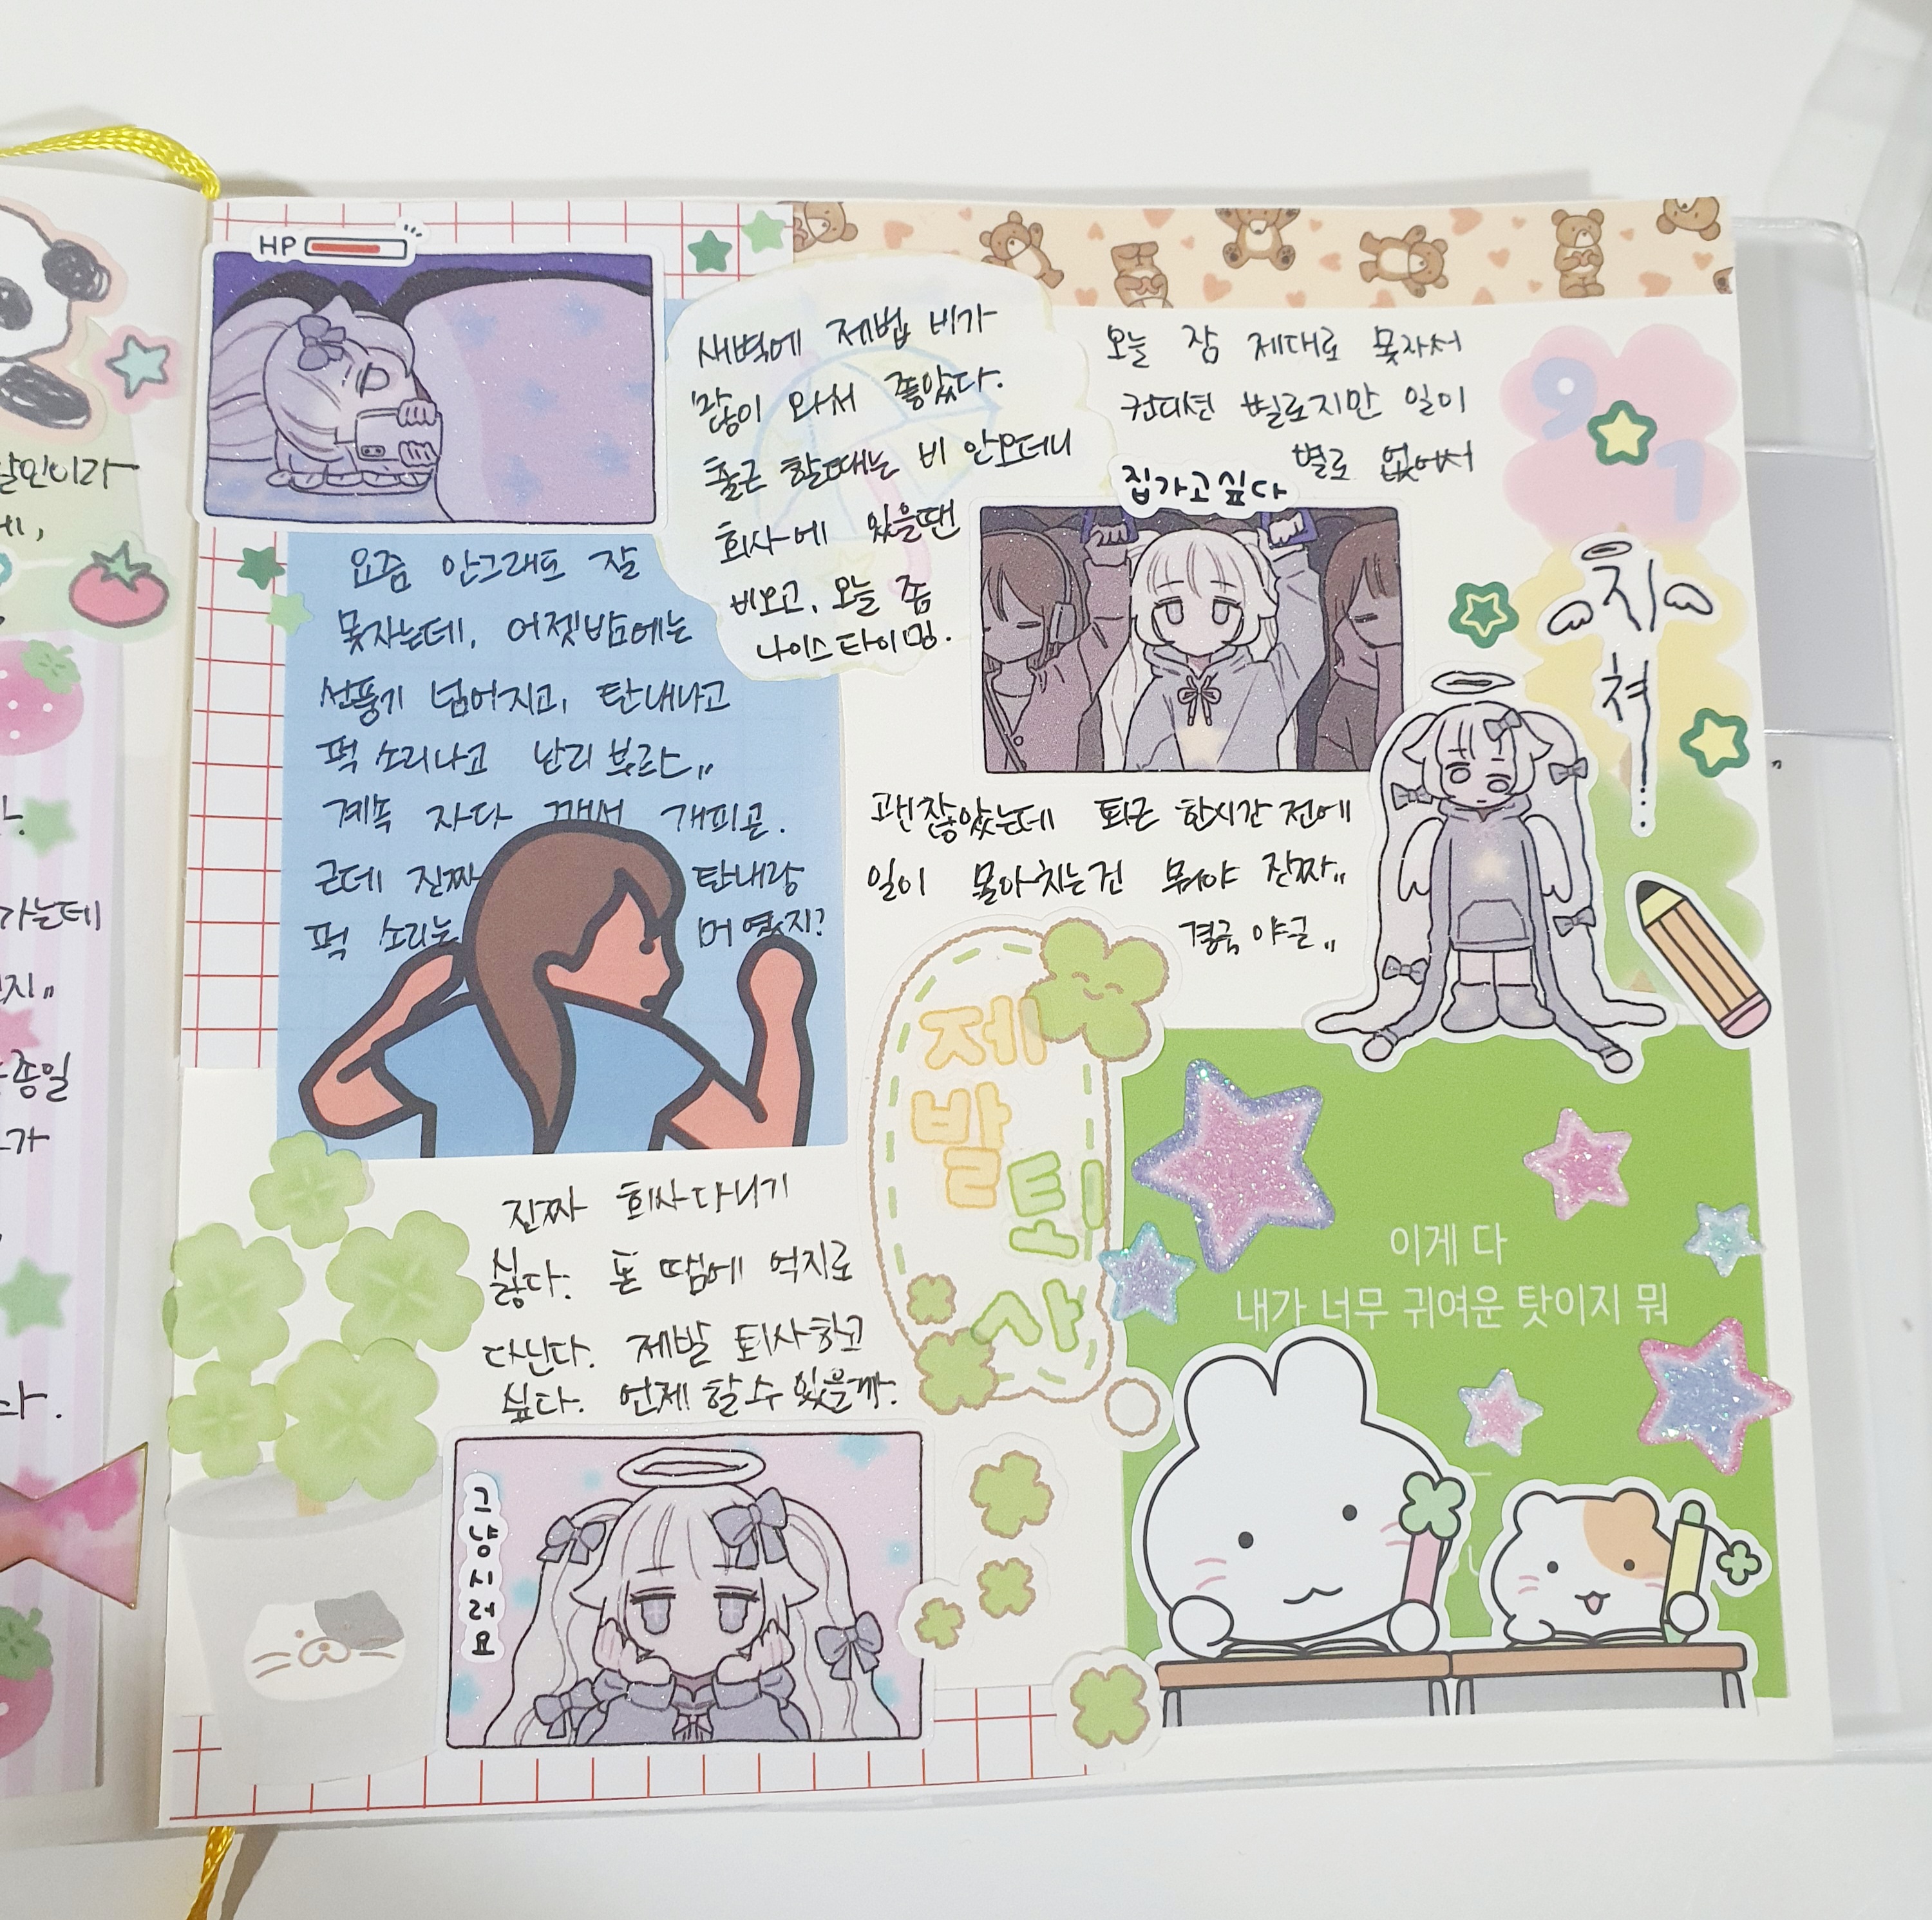 HP
새벽에 제법 비가
많이 와서 좋았다.
출근 할때는 비 안오더니
회사에 있을땐
비오고, 오늘 좀
나이스타이밍.
오늘 잠 제대로 못자서
컨디션 별로지만 일이
별로 없어서
9
1
집가고싶다
지
쳐
괜찮았는데 퇴근 한시간 전에
일이 몰아치는건 뭐야 진짜,,
결국 야근,,
요즘 안그래도 잘
못자는데, 어젯밤에는
선풍기 넘어지고, 탄내나고
퍽 소리나고 난리 부르스,,
계속 자다 깨서 개피곤.
근데 진짜 탄내랑
퍽 소리는 머였지?
진짜 회사다니기
싫다. 돈 땜에 억지로
다닌다. 제발 퇴사하고
싶다. 언제 할 수 있을까.
제
발
퇴
사
이게 다
내가 너무 귀여운 탓이지 뭐
그냥시러요
가는데
종일